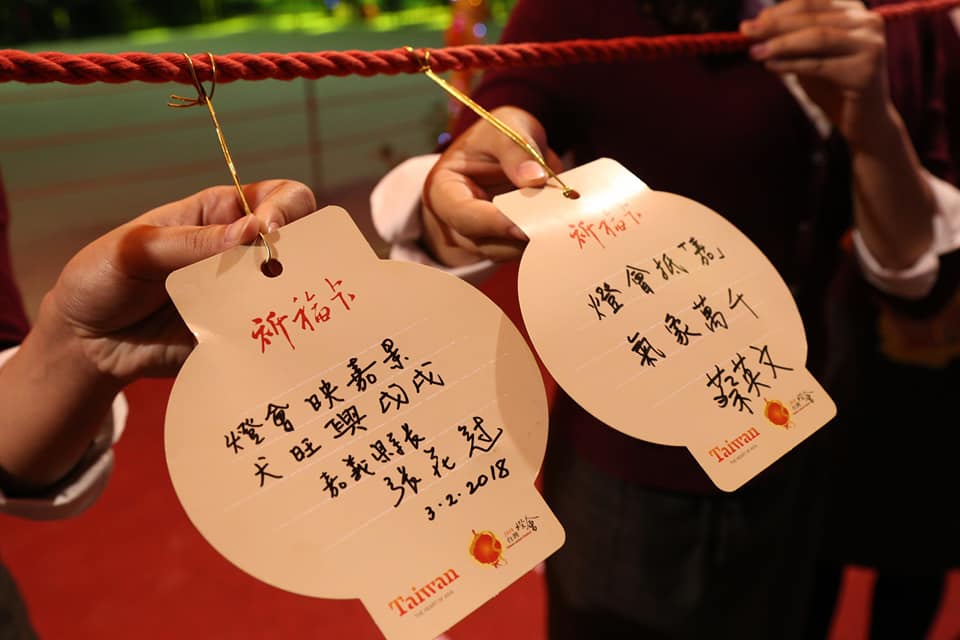 祈福卡
燈會映嘉景
犬旺興戊戌
嘉義縣長
張花冠
3.2.2018
Taiwan
THE HEART OF ASIA
2018
台灣燈會
祈福卡
燈會抵「嘉」
氣象萬千
蔡英文
Taiwan
THE HEART OF ASIA
2018
台灣燈會